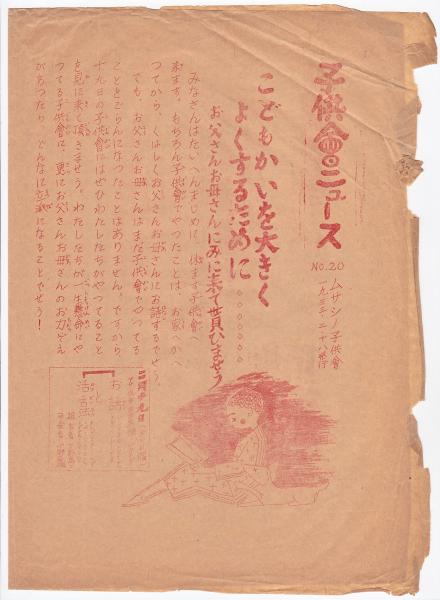 子供會のニュース
NO.20
ムサシノ子供會
こどもかいを大きく
よくするために
お父さんお母さんにみに来て貰ひませう
みなさんはたいへんまじめに、休まず子供會へ
来ます。もちろん子供會でやつたことは、お家へかへ
つてから、くはしくお父さんお母さんにお話するでせう。
でも、お父さんお母さんはまだ子供會でやつてる
ことをごらんになつたことはありません。ですから、
十九日の子供會にはぜひわたしたちがやつてること
を見に来て頂きませう。わたしたちが一生懸命にや
つてる子供會に、更にお父さんお母さんのお力ぞえ
があつたら、どんなに立派になることでせう！
お話
と